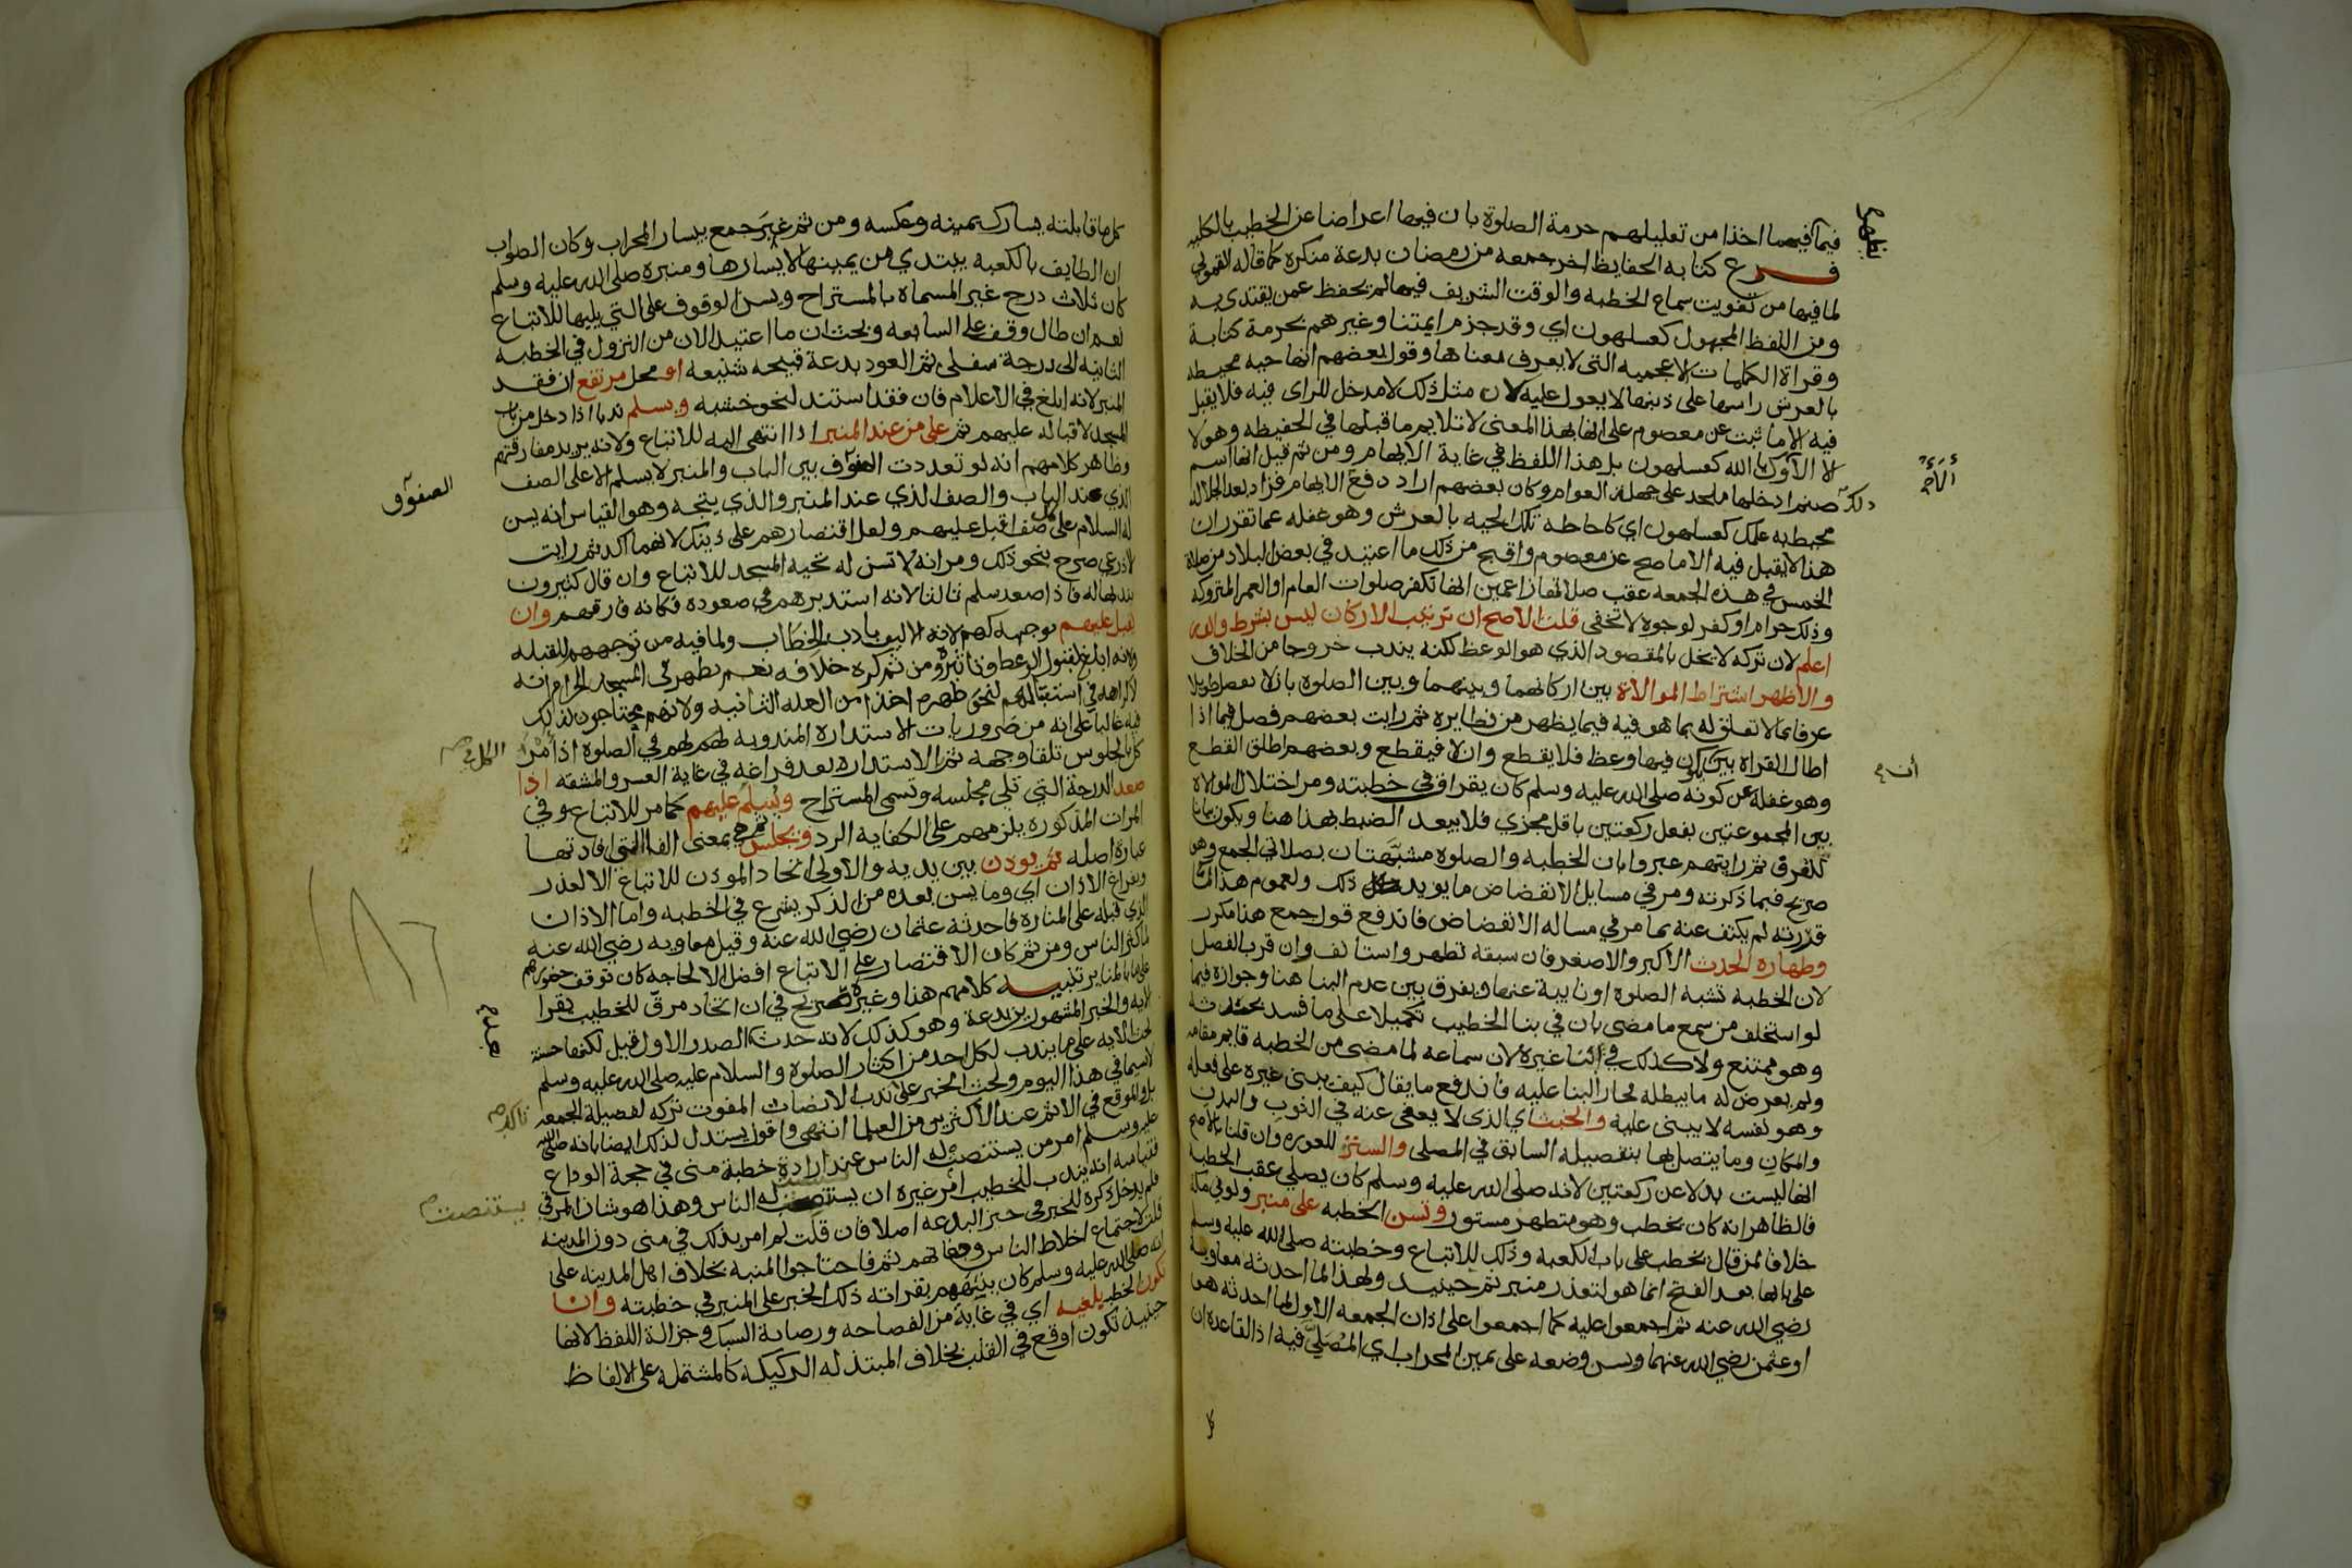 فيما فيهما اخذا من تعليلهم حرمة الصلوة بان فيها اعراضا عن الخطيب بالكليه
فرع كتابه الحفايظ اخر جمعه من رمضان بدعة منكرة كما قاله القمولي
لما فيها من تفويت سماع الخطبه والوقت الشريف فيما لم يحفظ عمن يقتدى به
ومن اللفظ المجهول كعسلهون اي وقد جزم ايمتنا وغيرهم بحرمة كتابة
وقراة الكلمات الاعجميه التى لا يعرف معناها وقول بعضهم انها حيه محيطه
بالعرش راسها على ذنبها لا يعول عليه لان مثل ذلك لا مدخل للراى فيه فلا يقبل
فيه الا ما ثبت عن معصوم على انها بهذا المعنى لا تلايم ما قبلها في الحفيظه وهو لا
الا الآوك يا الله كعسلهون بل هذا اللفظ في غاية الايهام ومن ثم قيل انها اسم
صنم ادخلها ملحد على جهلة العوام وكان بعضهم اراد دفع الايهام فزاد بعد الجلاله
محيط به علمك كعسلهون اي كاحاطه تلك الحيه بالعرش وهو غفله عما تقرر ان
هذا لا يقبل فيه الا ما صح عن معصوم واقبح من ذلك ما اعتيد في بعض البلاد من صلاة
الخمس في هذه الجمعه عقب صلاتها زاعمين انها تكفر صلوات العام او العمر المتروكه
وذلك حرام او كفر لوجوه لا تخفى قلت الاصح ان ترتيب الاركان ليس بشرط والله
اعلم لان تركه لا يخل بالمقصود الذي هو الوعظ لكنه يندب خروجا من الخلاف
والاظهر اشتراط الموالاة بين اركانهما وبينهما وبين الصلوة بان لا يفصل طويلا
عرفا بما لا تعلق له بما هو فيه فيما يظهر من نظايره ثم رايت بعضهم فصل فيما اذا
اطال القراه بين ان يكون فيها وعظ فلا يقطع وان لا فيقطع وبعضهم اطلق القطع
وهو غفله عن كونه صلى الله عليه وسلم كان يقرا ق في خطبته ومر اختلال الموالاة
بين المجموعتين بفعل ركعتين باقل مجزي فلا يبعد الضبط بهذا هنا ويكون بيانا
للعرف ثم رايتهم عبروا بان الخطبه والصلوة مشبهتان بصلاتى الجمع وهو
صريح فيما ذكرته ومر في مسايل الانفضاض ما يويد ذلك ولعموم هذا الذى
قررته لم يكتف عنه بما مر في مساله الانفضاض فاندفع قول جمع هنا مكرر
وطهارة الحدث الاكبر والاصغر فان سبقه تطهر واستانف وان قرب الفصل
لان الخطبه تشبه الصلوة او نايبة عنها ويفرق بين عدم البنا هنا وجوازه فيما
لو استخلف من سمع ما مضى بان في بنا الخطيب تكميلا على ما فسد بحدثه
وهو ممتنع ولا كذلك في بنا غيره لان سماعه لما مضى من الخطبه قايم مقامه
ولم يعرض له ما يبطله فجاز البنا عليه فاندفع ما يقال كيف يبنى غيره على فعله
وهو نفسه لا يبنى عليه والخبث اي الذى لا يعفى عنه في الثوب والبدن
والمكان وما يتصل بها بتفصيله السابق في المصلى والستر للعوره وان قلنا بالاصح
انها ليست بدلا عن ركعتين لانه صلى الله عليه وسلم كان يصلي عقب الخطبه
فالظاهر انه كان يخطب وهو متطهر مستور وتسن الخطبه على منبر ولو في مكة
خلافا لمن قال يخطب على باب الكعبه وذلك للاتباع وخطبته صلى الله عليه وسلم
على بابها بعد الفتح انما هو لتعذر منبر ثم حينيذ ولهذا لما احدثه معاوية
رضي الله عنه ثم اجمعوا عليه كما اجمعوا على اذان الجمعه الاول لما احدثه هو
او عثمن رضي الله عنهما ويسن وضعه على يمين المحراب اي المصلى فيه اذ القاعده ان
كل
الصفوف
كل ما قابلته يسارك يمينه وعكسه ومن ثم عبر جمع بيسار المحراب وكان الصواب
ان الطايف بالكعبه يبتدي من يمينها لا يسارها ومنبره صلى الله عليه وسلم
كان ثلاث درج غير المسماة بالمستراح ويسن الوقوف على التي يليها للاتباع
نعم ان طال وقف على السابعه وبحث ان ما اعتيد الان من النزول في الخطبه
الثانيه الى درجة سفلى ثم العود بدعة قبيحه شنيعه او محل مرتفع ان فقد
المنبر لانه ابلغ في الاعلام فان فقد استند لنحو خشبه ويسلم ندبا اذا دخل من باب
المسجد لاقباله عليهم ثم على من عند المنبر اذا انتهى اليه للاتباع ولانه يريد مفارقتهم
وظاهر كلامهم انه لو تعددت الصفوف بين الباب والمنبر لا يسلم الا على الصف
الذي عند الباب والصف الذي عند المنبر والذي يتجه وهو القياس انه يسن
له السلام على كل صف اقبل عليهم ولعل اقتصارهم على ذينك لانهما اكد ثم رايت
الاذرعي صرح بنحو ذلك ومر انه لا تسن له تحيه المسجد للاتباع وان قال كثيرون
بندبها له فاذا صعد سلم ثالثا لانه استدبرهم في صعوده فكانه فارقهم وان
يقبل عليهم بوجهه لانه اللايق بادب الخطاب ولما فيه من توجههم للقبله
ولانه ابلغ لقبول الوعظ وتاثيره ومن ثم كره خلافه نعم يظهر في المسجد الحرام انه
لا كراهه في استقبالهم لنحو ظهره اخذا من العله الثانيه ولانهم محتاجون لذلك
فيه غالبا على انه من ضروريات الاستدارة المندوبه لهم في الصلوة اذ امر
الكل بالجلوس تلقا وجهه ثم الاستداره بعد فراغه في غاية العسر والمشقه اذا
صعد الدرجة التي تلي مجلسه وتسمى المستراح ويسلم عليهم كما مر للاتباع وفي
المرات المذكوره يلزمهم على الكفايه الرد ويجلس ثم هي بمعنى الفا التي افادتها
عبارة اصله ثم يوذن بين يديه والاولى اتحاد الموذن للاتباع الا لعذر
وبفراغ الاذان اي وما يسن بعده من الذكر يشرع في الخطبه واما الاذان
الذي قبله على المنارة فاحدثه عثمان رضي الله عنه وقيل معاويه رضي الله عنه
لما كثر الناس ومن ثم كان الاقتصار على الاتباع افضل الا لحاجه كان توقف حضورهم
على ما بالمناير تنبيه كلامهم هنا وغيره صريح في ان اتخاد مرق للخطيب يقرا
الايه والخبر المشهورين بدعة وهو كذلك لانه حدث الصدر الاول قيل لكنها حسنة
لحث الايه على ما يندب لكل احد من اكثار الصلوة والسلام عليه صلى الله عليه وسلم
لا سيما في هذا اليوم ولحث الخبر على تاكد ندب الانصات المفوت تركه لفضيلة الجمعه
بل والموقع في الاثم عند الاكثرين من العلما انتهى واقول يستدل لذلك ايضا بانه صلى الله
عليه وسلم امر من يستنصت له الناس عند ارادة خطبة منى في حجة الوداع
فقياسه انه يندب للخطيب امر غيره ان يستنصت له الناس وهذا هو شان المرقي
فلم يدخل ذكره للخبر في حيز البدعه اصلا فان قلت لم امر بذلك في منى دون المدينه
قلت لاجتماع اخلاط الناس وجفاتهم ثم فاحتاجوا لمنبه بخلاف اهل المدينه على
انه صلى الله عليه وسلم كان ينبههم بقراته ذلك الخبر على المنبر في خطبته وان
تكون الخطبه بليغه اي في غاية من الفصاحه ورصانة السبك وجزالة اللفظ لانها
حينيذ تكون اوقع في القلب بخلاف المبتذله الركيكه كالمشتملة على الالفاظ
يستنصت